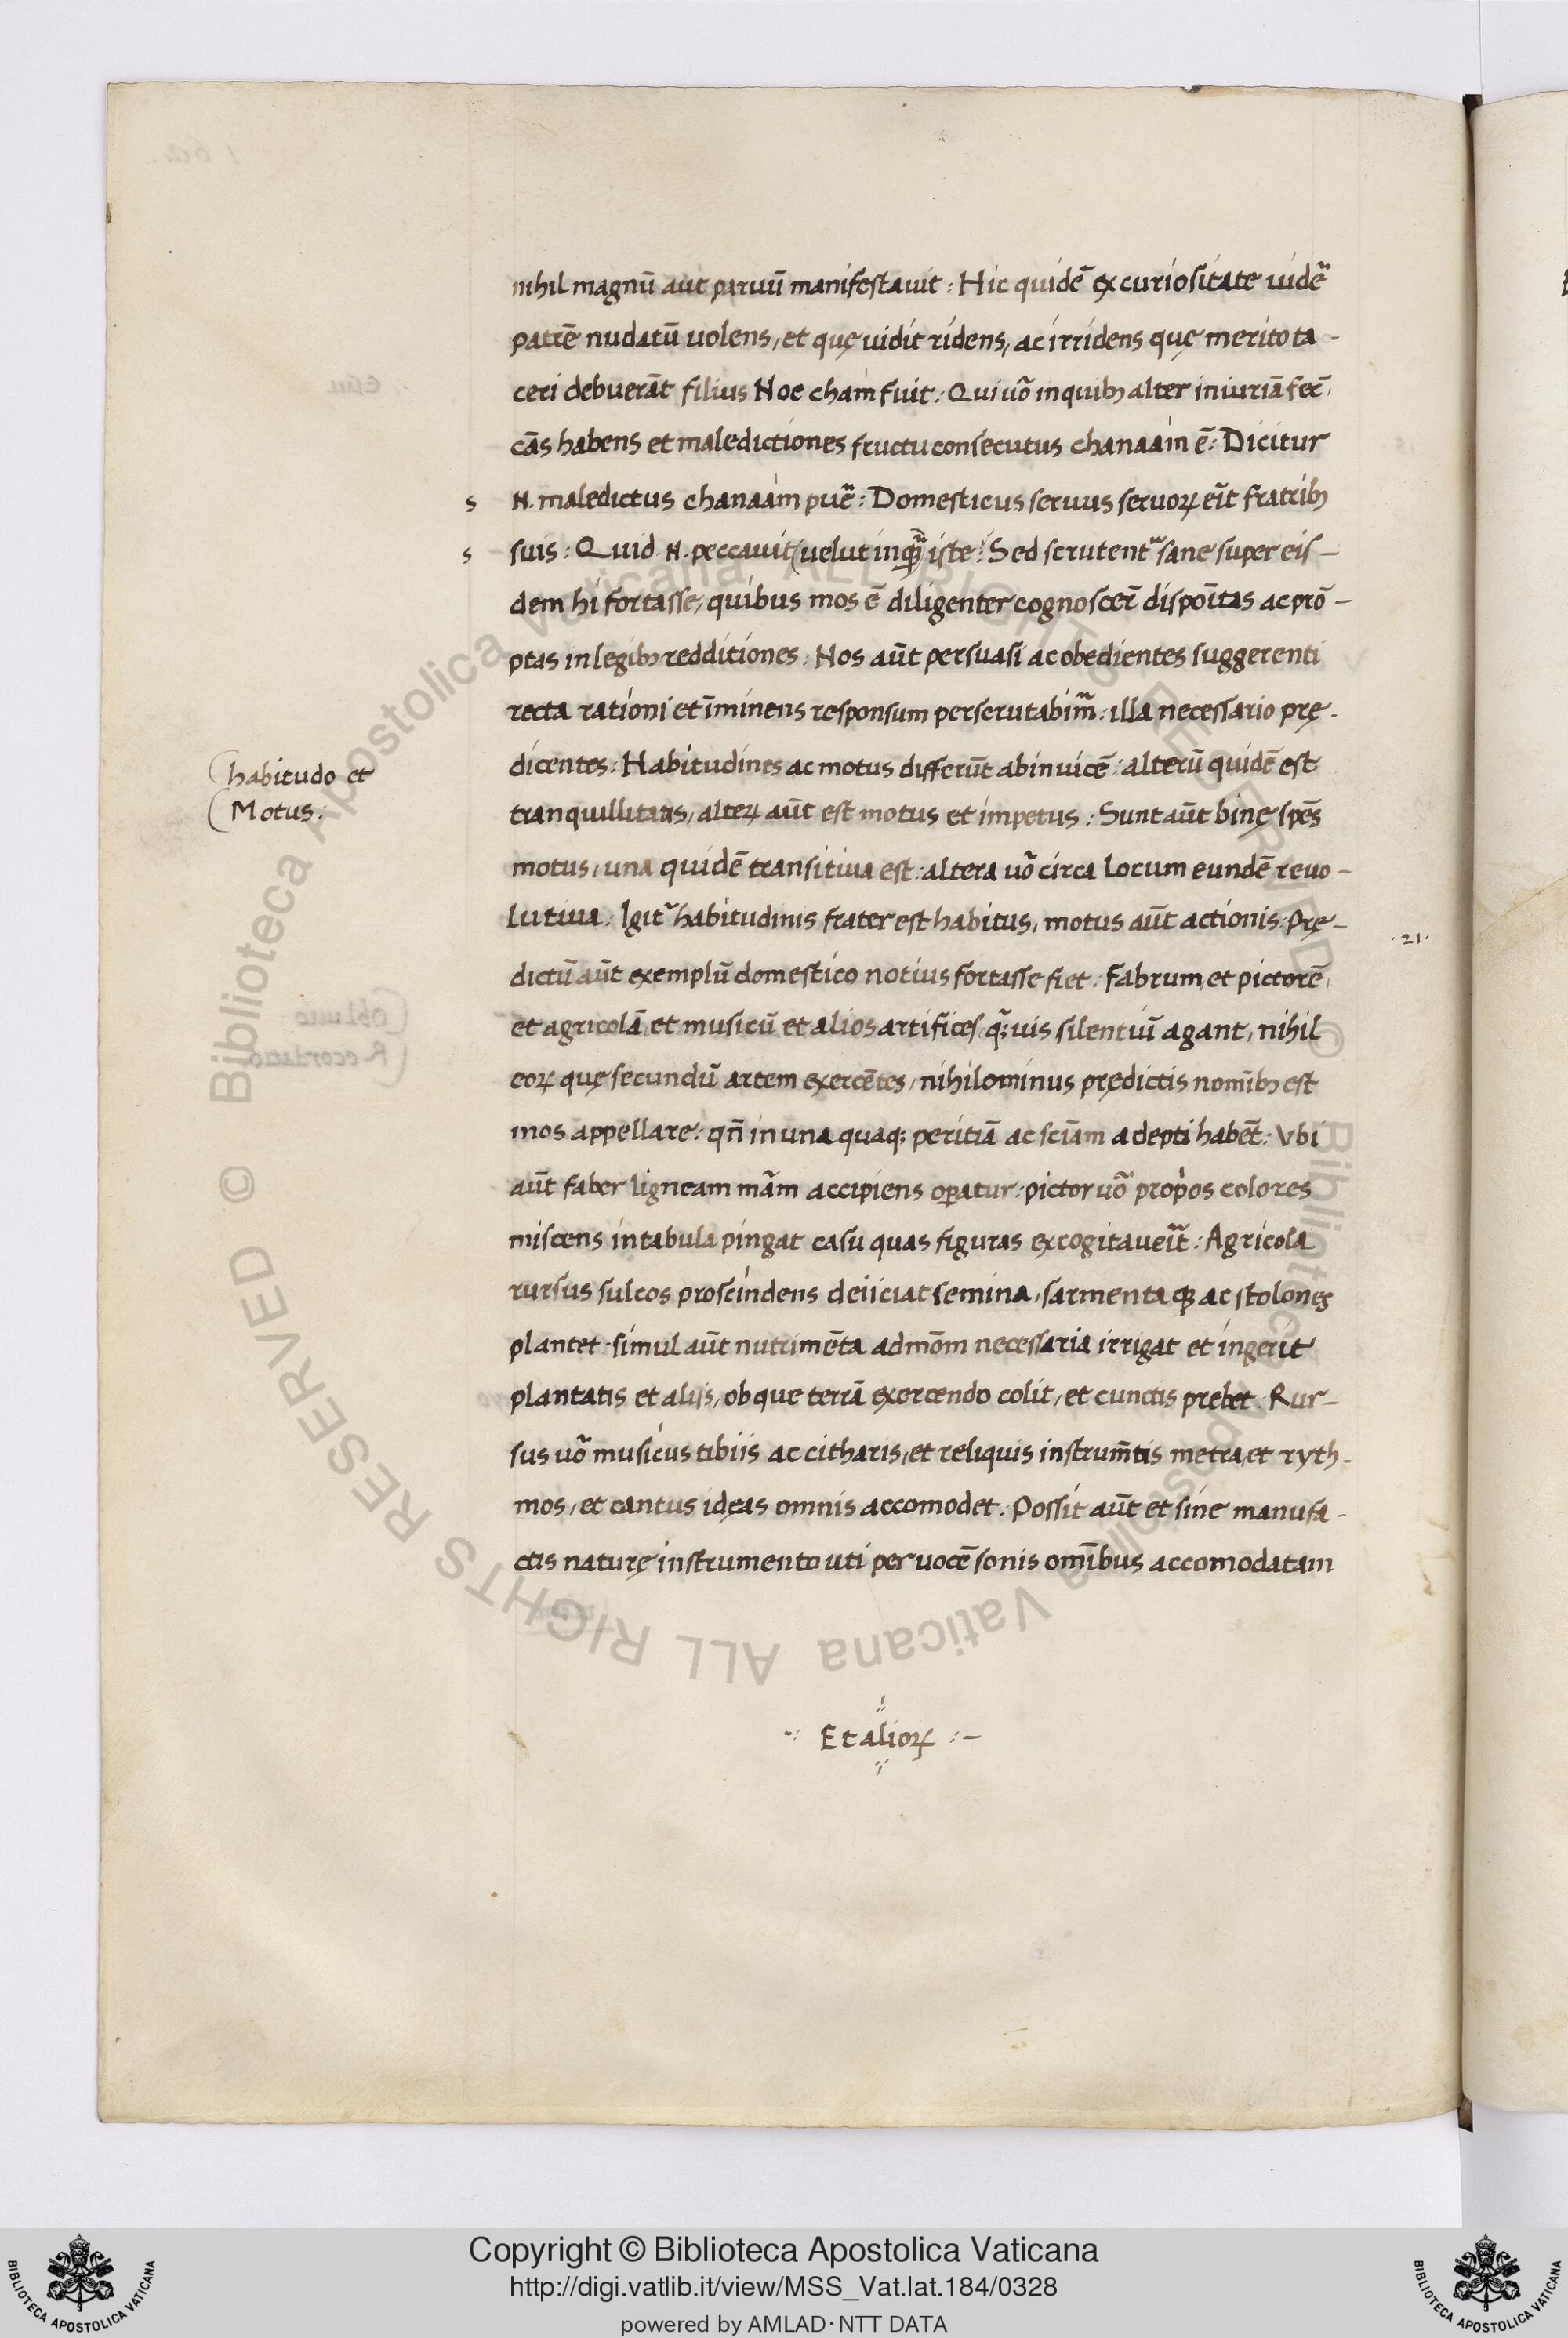 nihil magnū aut paruū manifestauit: Hic quidē ex curiositate uidē
patrē nudatū uolens, et quę uidit ridens, ac irridens quę merito ta-
ceri debuerāt filius Noe cham fuit: Qui uō in quib; alter iniuriā fec̄,
cās habens et maledictiones fructu consecutus chanaam ē: Dicitur
s N. maledictus chanaam puē: Domesticus seruus seruoꝝ eīt fratrib;
s suis: Quid N. peccauit velut inq̄ iste: Sed scrutent᷑ sane super eis-
dem hi fortasse, quibus mos ē diligenter cognoscer̄ dispoītas ac prō-
ptas in legib; redditiones: Nos aūt persuasi ac obedientes suggerenti
recta rationi et īminens responsum perscrutabim̄: illa necessario prę-
dicentes: Habitudines ac motus differūt abinuicē: alterū quidē est
habitudo et
Motus:
tranquillitatis, alteꝝ aūt est motus et impetus: Sunt aūt binę spēs
motus, una quidē transitiua est: altera uō circa locum eundē reuo-
lutiua: Igit᷑ habitudinis frater est habitus, motus aūt actionis: Prę-
.21.
dictū aūt exemplū domestico notius fortasse fiet: Fabrum, et pictorē,
et agricolā, et musicū et alios artifices, q̄uis silentiū agant, nihil
eoꝝ quę secundū artem exercētes, nihilominus prędictis nomīb; est
mos appellare: qn̄ in una quaq; peritiā ac sciām adepti habēt: Vbi
aūt faber ligneam mām accipiens oꝑatur: pictor uō propos colores
miscens in tabula pingat casu quas figuras excogitaueīt: Agricola
rursus sulcos proscindens deiiciat semina, sarmentaq; ac stolones
plantet. simul aūt nutrimēta admōm necessaria irrigat et ingerit
plantatis et aliis, ob que terrā exercendo colit, et cunctis prebet: Rur-
sus uō musicus tibiis ac citharis, et reliquis instrum̄tis metra, et ryth-
mos, et cantus idęas omnis accomodet: Possit aūt et sine manufa-
ctis naturę instrumento uti per uocē sonis omībus accomodatam
Et alioꝝ :-
© Biblioteca Apostolica Vaticana ALL RIGHTS RESERVED © Biblioteca Apostolica Vaticana ALL RIGHTS RESERVED
Copyright © Biblioteca Apostolica Vaticana
http://digi.vatlib.it/view/MSS_Vat.lat.184/0328
powered by AMLAD·NTT DATA
BIBLIOTECA APOSTOLICA VATICANA
BIBLIOTECA APOSTOLICA VATICANA